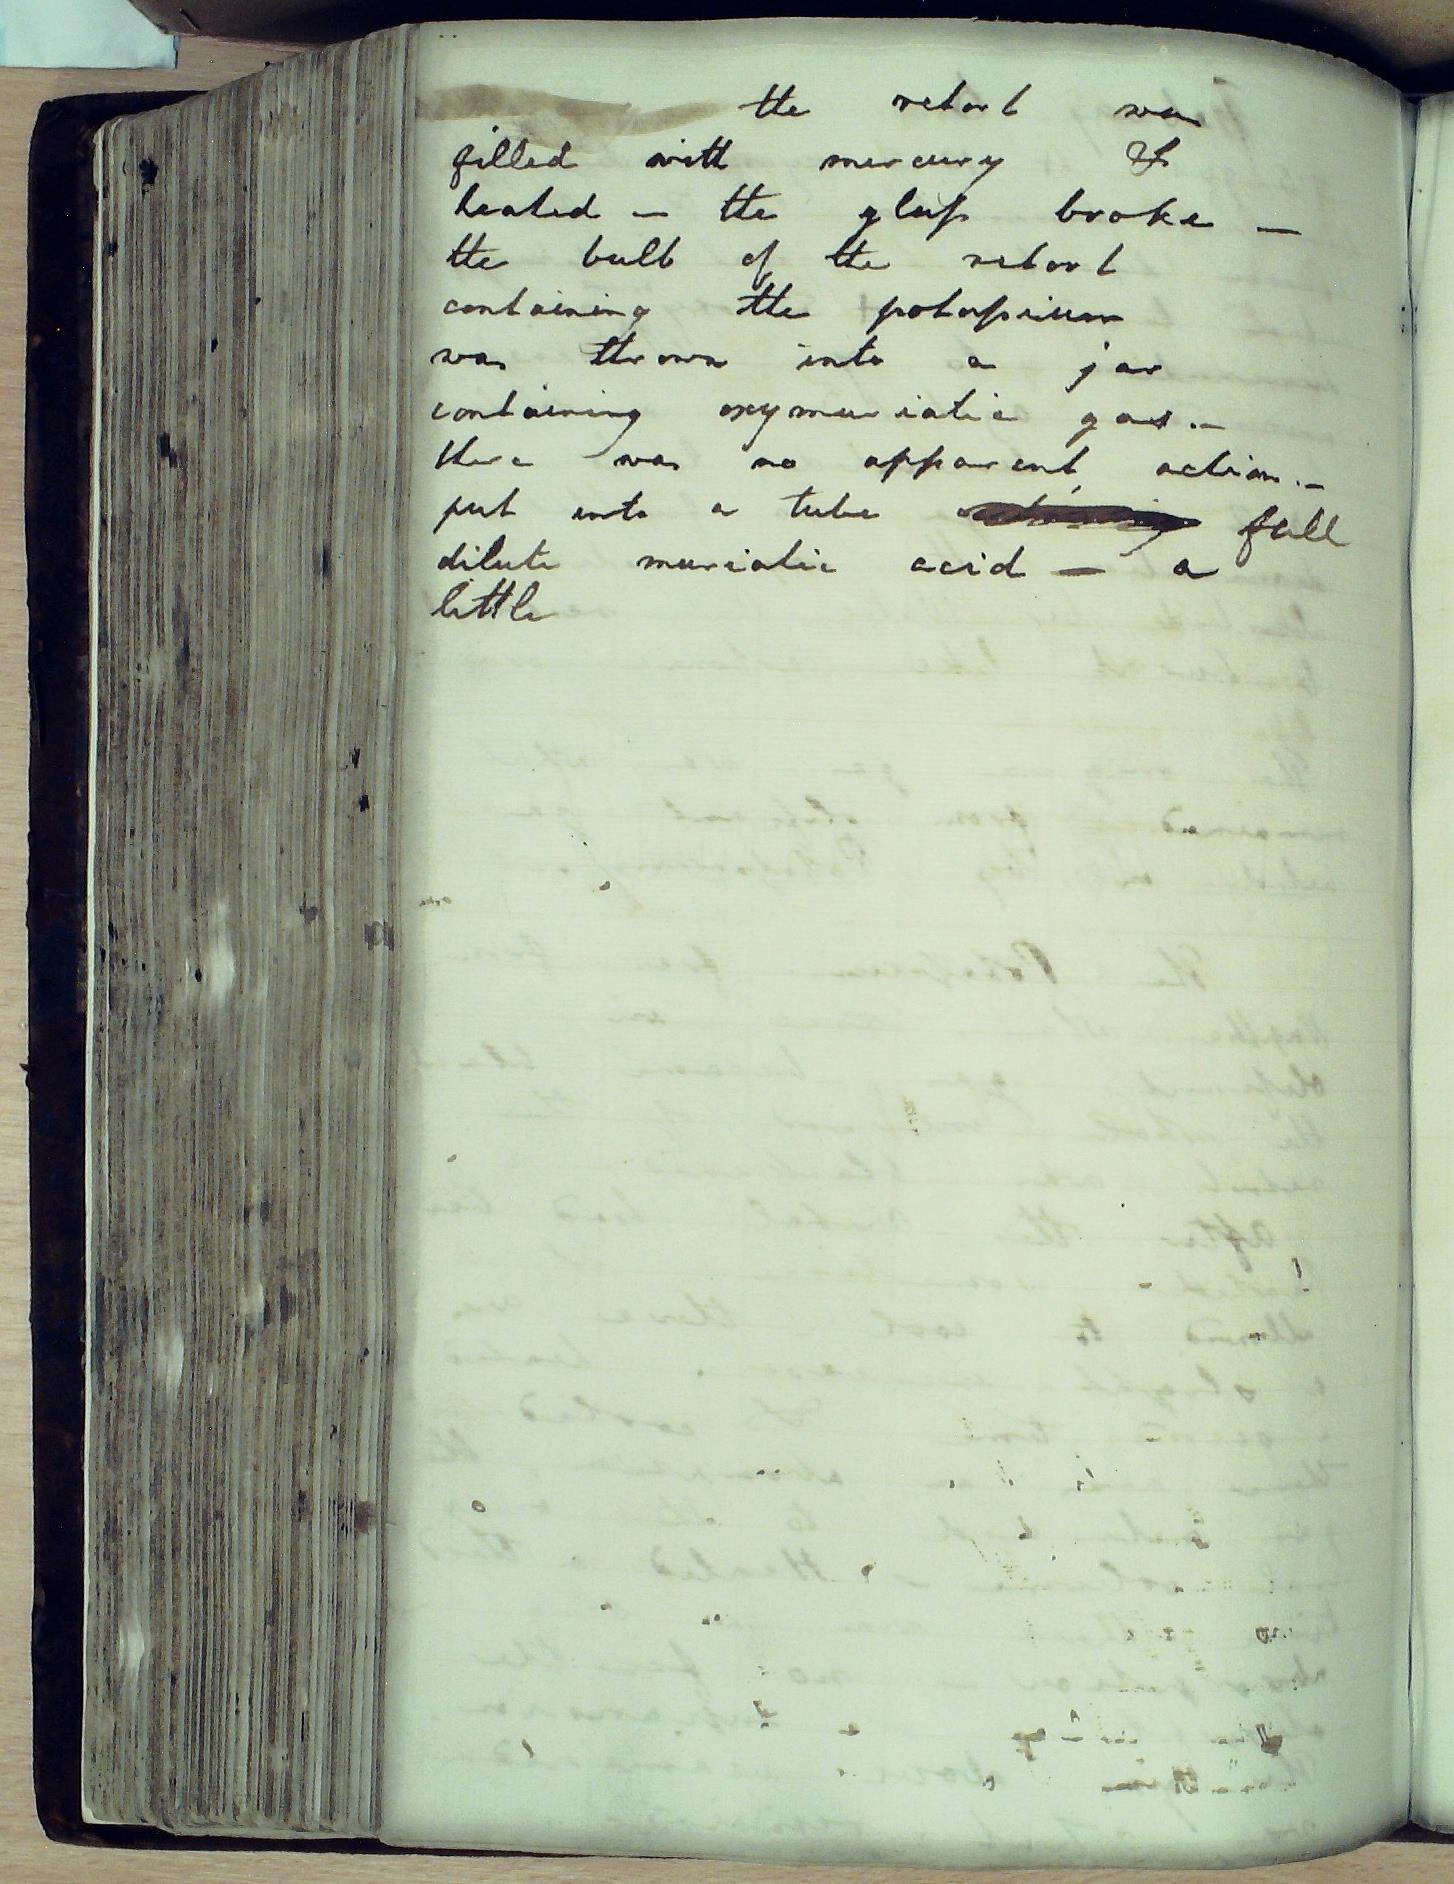 the retort was
filled with mercury &
heated – the glaſs broke –
the bulb of the retort
containing the potaſsium
was thrown into a jar
containing oxymuriatic gas.–
there was no apparent action.–
put into a tube full
dilute muriatic acid – a
little